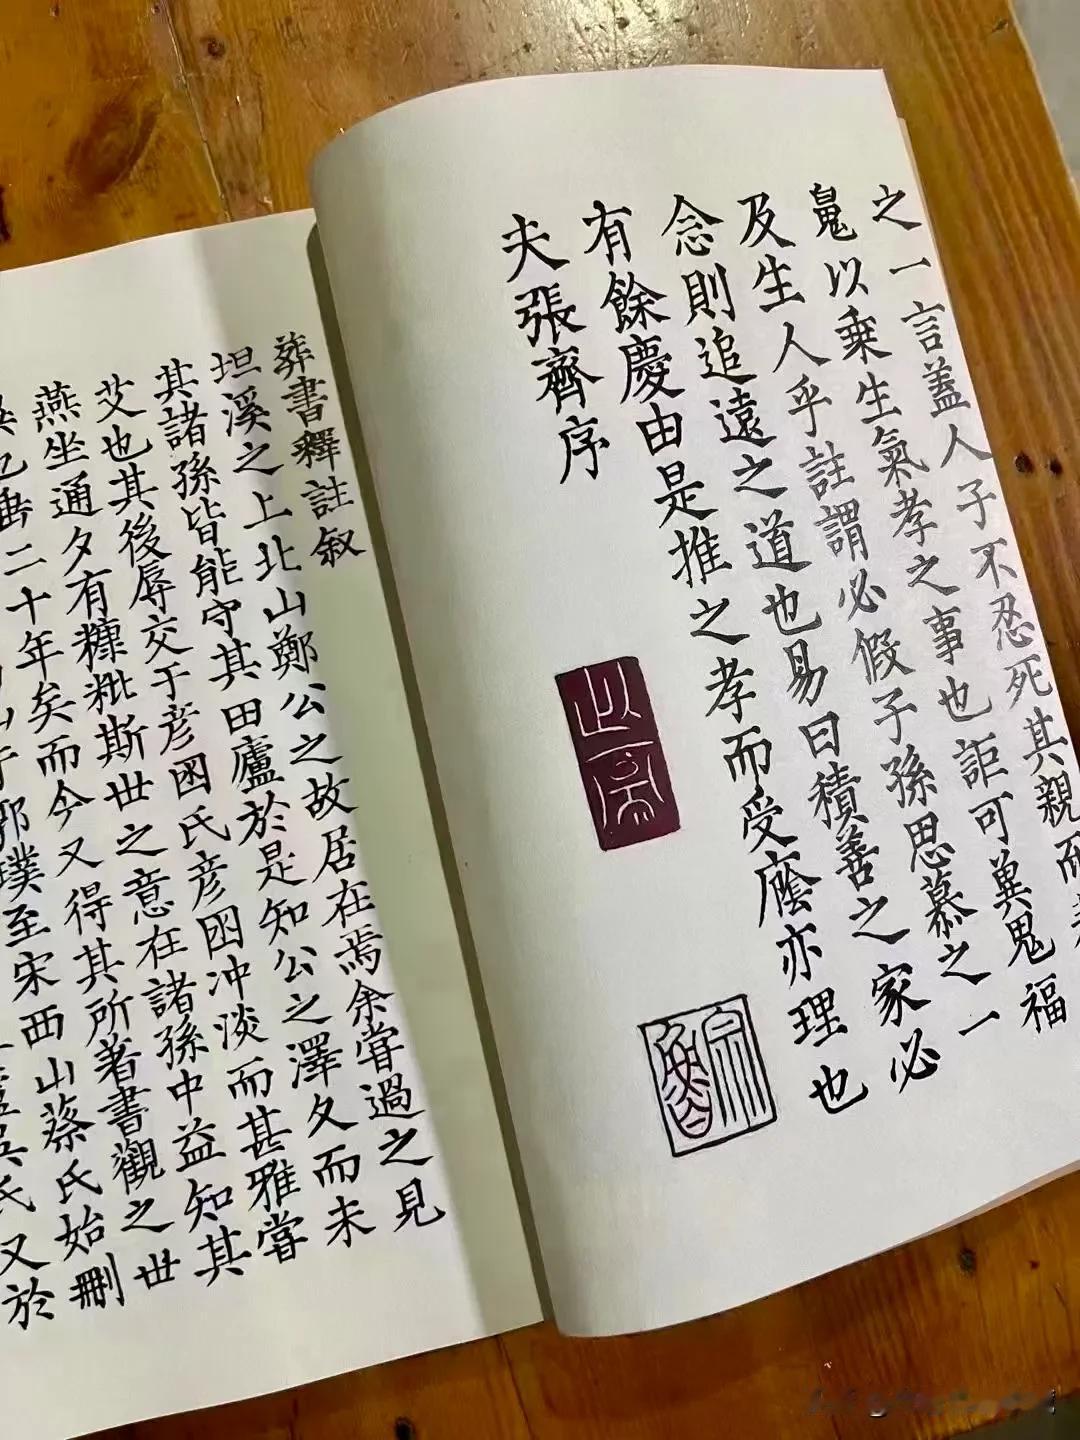 之一言蓋人子不忍死其親而
鬼以乗生氣孝之事也詎可冀鬼福
及生人乎註謂必假子孫思慕之一
念則追遠之道也易曰積善之家必
有餘慶由是推之孝而受廕亦理也
夫張齊序
葬書釋註叙
坦溪之上北山鄭公之故居在焉余甞過之見
其諸孫皆能守其田廬於是知公之澤久而未
艾也其後辱交于彦囦氏彦囦冲淡而甚雅甞
燕坐通夕有糠粃斯世之意在諸孫中益知其
二十年矣而今又得其所著書觀之世
郭璞至宋西山蔡氏始刪
吳氏又於